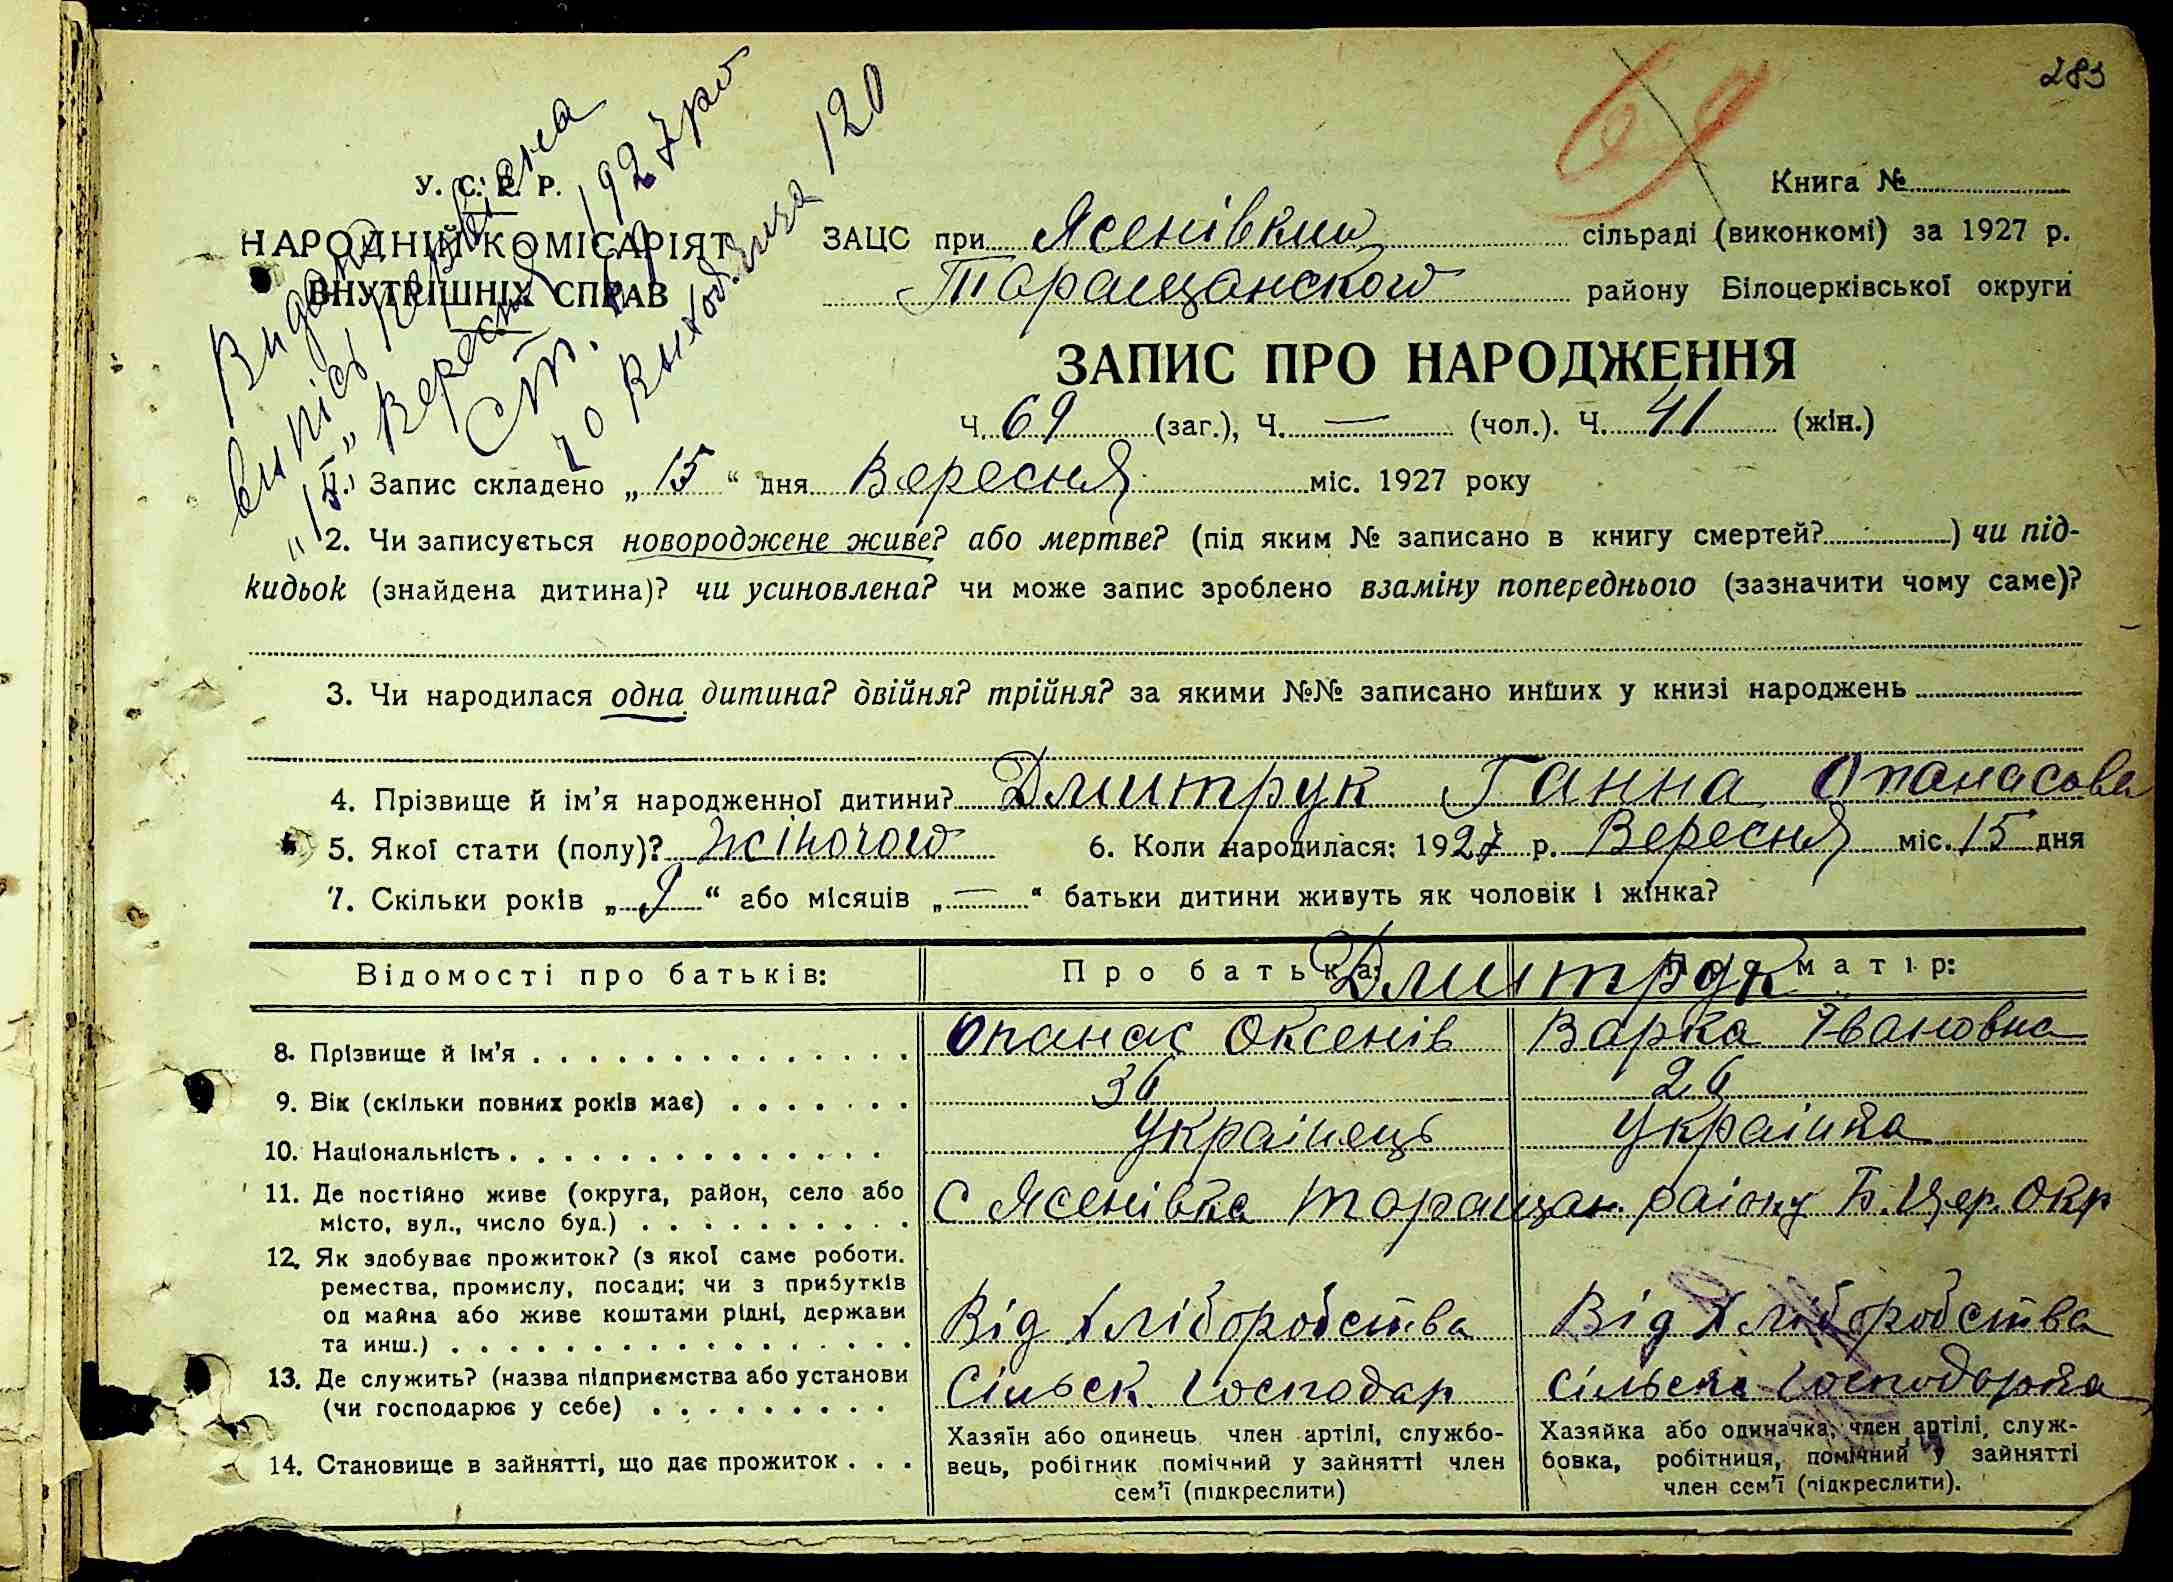 283
69
Видана
випісь первісна
"15" Вересня 1927 ро
ст. 19
по виход. зича 120
У. С. Р. Р.
НАРОДНІЙ КОМІСАРІЯТ
ВНУТРІШНІХ СПРАВ
Книга №
ЗАЦС при Ясенівкии сільраді (виконкомі) за 1927 р.
Таращанского району Білоцерківської округи
ЗАПИС ПРО НАРОДЖЕННЯ
Ч. 69 (заг.), Ч. — (чол.). Ч. 41 (жін.)
1. Запис складено „15“ дня Вересня міс. 1927 року
2. Чи записується новороджене живе? або мертве? (під яким № записано в книгу смертей? ) чи під-
кидьок (знайдена дитина)? чи усиновлена? чи може запис зроблено взаміну попереднього (зазначити чому саме)?
3. Чи народилася одна дитина? двійня? трійня? за якими №№ записано инших у книзі народжень
4. Прізвище й ім'я народженної дитини? Дмитрук Ганна Опанасова
5. Якої стати (полу)? Жіночого 6. Коли народилася: 1927 р. Вересня міс. 15 дня
7. Скільки років „9“ або місяців „—“ батьки дитини живуть як чоловік і жінка?
Відомості про батьків: Про батька: Про матір:
Дмитрук
8. Прізвище й ім'я Опанас Оксенів Варка Івановна
9. Вік (скільки повних років має) 36 26
10. Національність Українець Українка
11. Де постійно живе (округа, район, село або
місто, вул., число буд.) С Ясенівка Таращан. раіону Б. Цер. Окр
12. Як здобуває прожиток? (з якої саме роботи.
ремества, промислу, посади; чи з прибутків
од майна або живе коштами рідні, держави
та инш.) Від Хліборобства Від Хліборобства
13. Де служить? (назва підприємства або установи
(чи господарює у себе) Сільск. Господар Сільске Господарка
14. Становище в зайнятті, що дає прожиток
Хазяїн або одинець член артілі, службо-
вець, робігник помічний у зайнятті член
сем'ї (підкреслити)
Хазяйка або одиначка, член артілі, служ-
бовка, робітниця, помічний у зайнятті
член сем'ї (підкреслити).